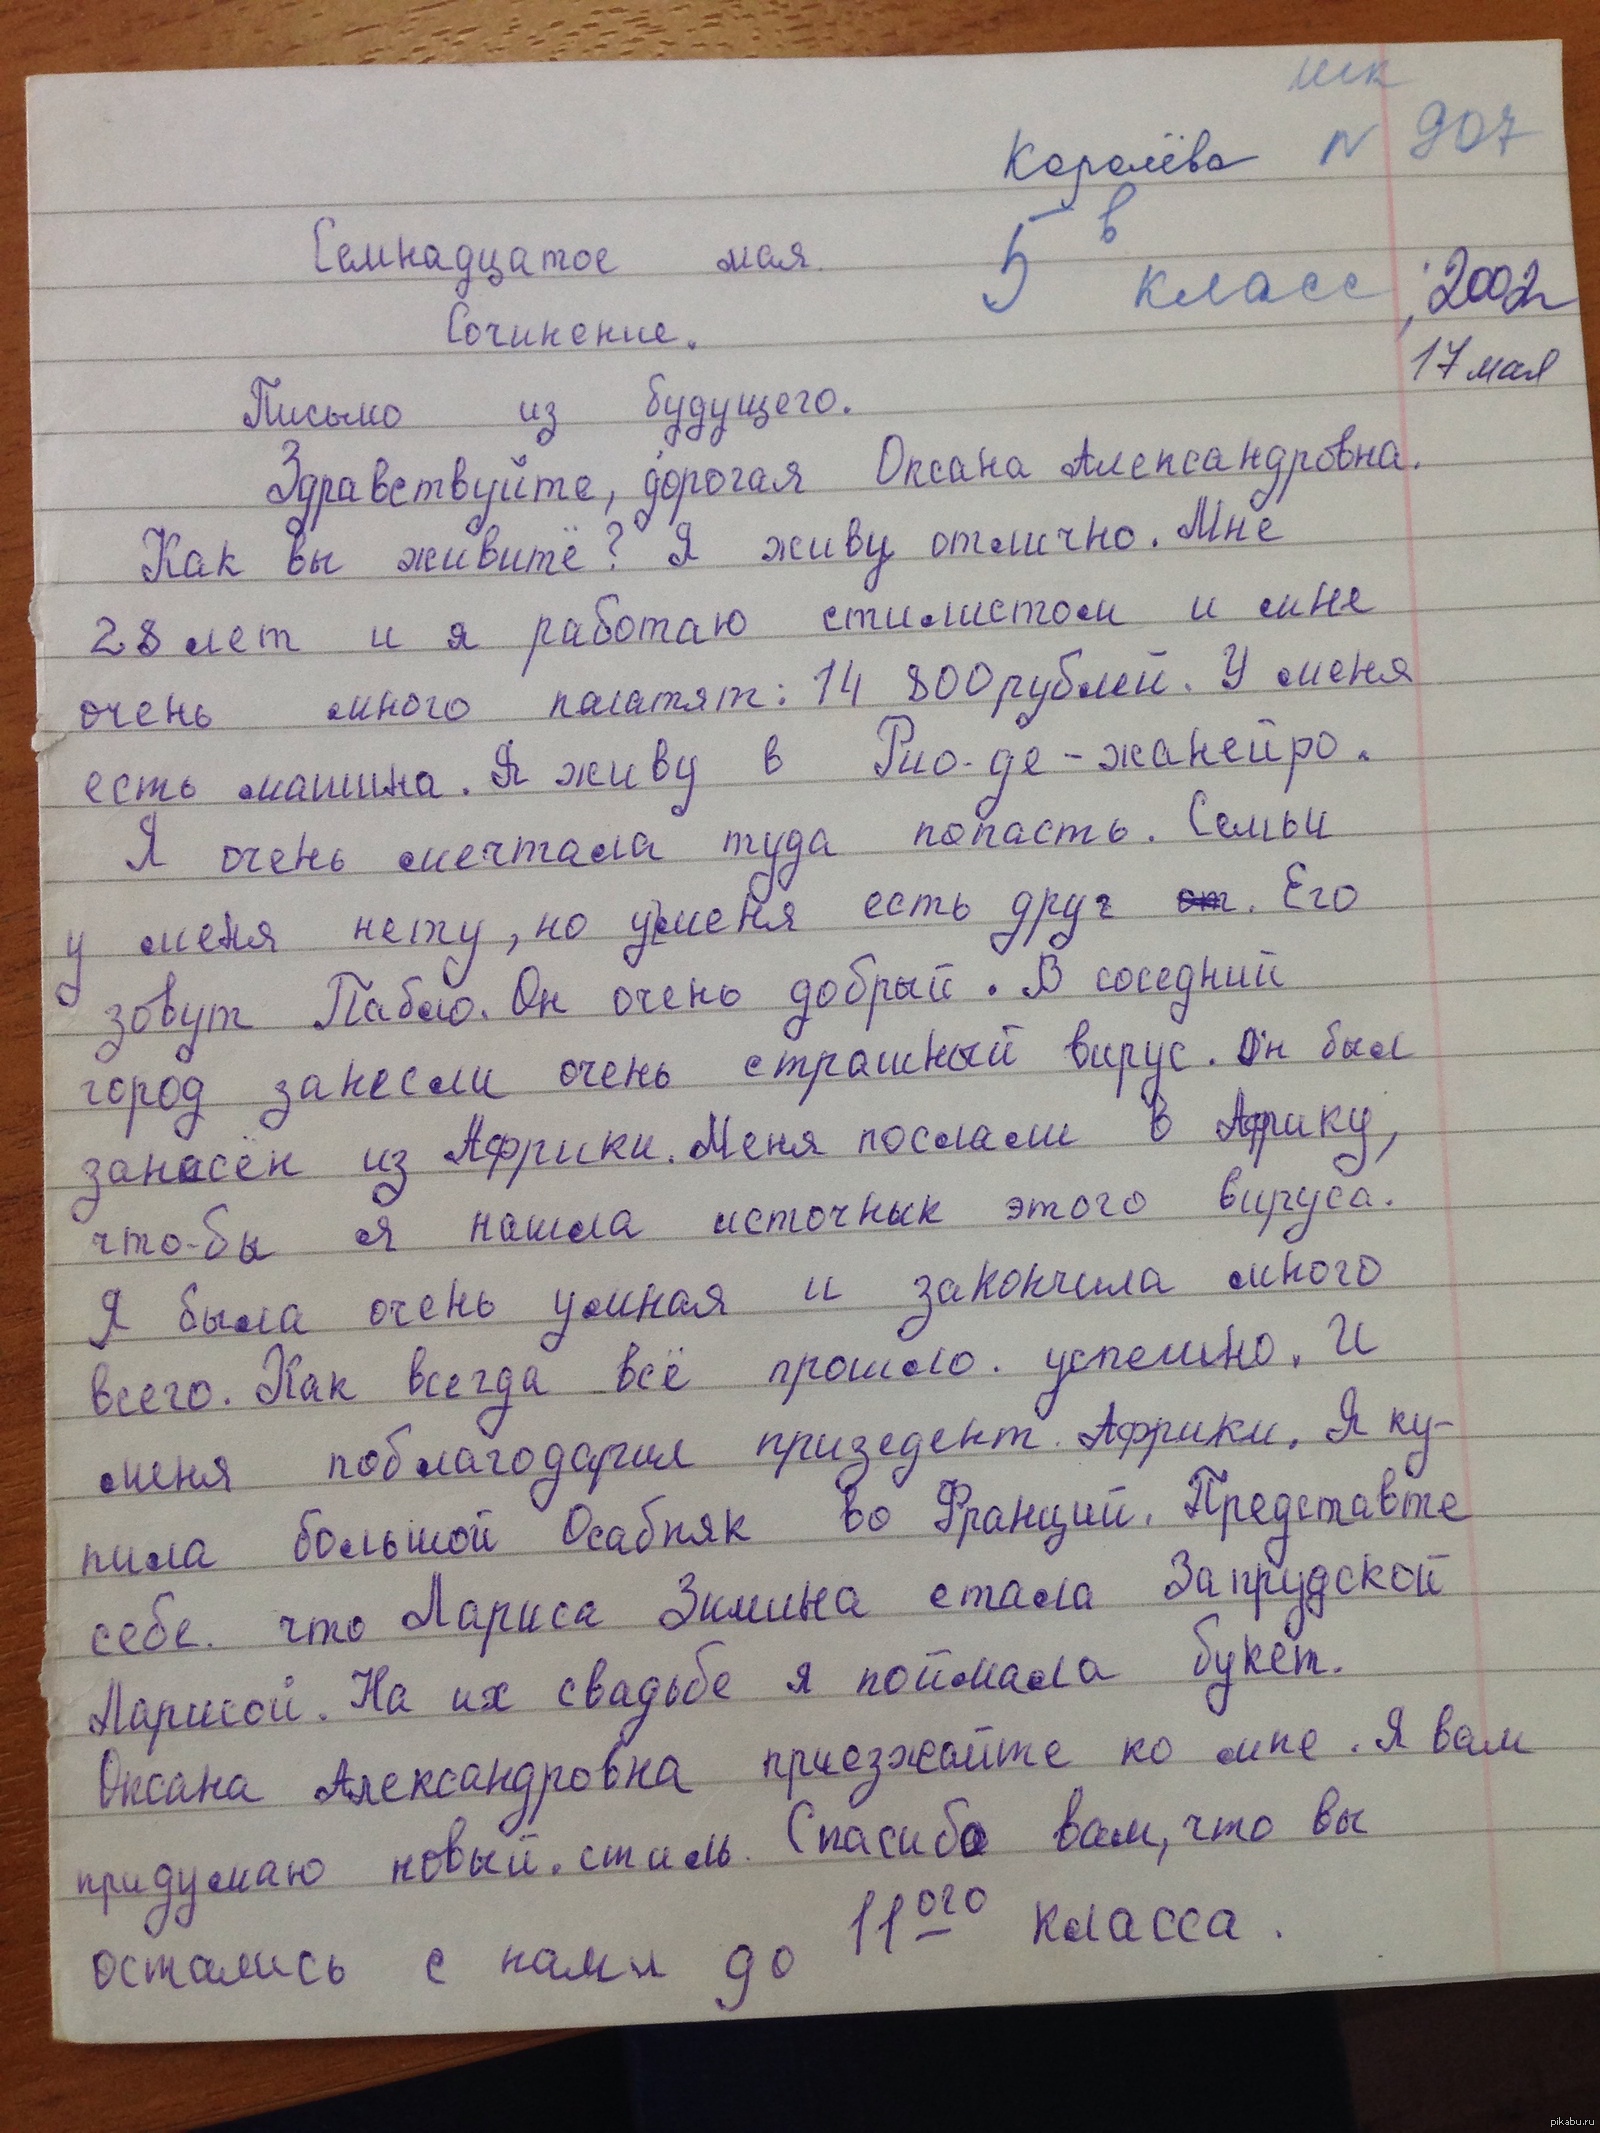 шк
Королёва № 907
5 в класс, 2002г
17 мая
Семнадцатое мая.
Сочинение.
Письмо из будущего.
Здравствуйте, дорогая Оксана Александровна.
Как вы живитё? Я живу отлично. Мне
28 лет и я работаю стилистом и мне
очень много палатят: 14 800 рублей. У меня
есть машина. Я живу в Рио-де-жанейро.
Я очень мечтала туда попасть. Семьи
у меня нету, но у меня есть друг от. Его
зовут Пабло. Он очень добрый. В соседний
город занесли очень страшный вирус. Он был
занесён из Африки. Меня послали в Африку,
что-бы я нашла источнык этого вируса.
Я была очень умная и закончила много
всего. Как всегда всё прошло. успешно. И
меня поблагодарил призедент. Африки. Я ку-
пила большой Особняк во Франций. Представте
себе. что Лариса Зимина стала Запрудской
Ларисой. На их свадьбе я поймала букет.
Оксана Александровна приезжайте ко мне. Я вам
придумаю новый. стиль. Спасибо вам, что вы
остались с нами до 11ого класса.
pikabu.ru